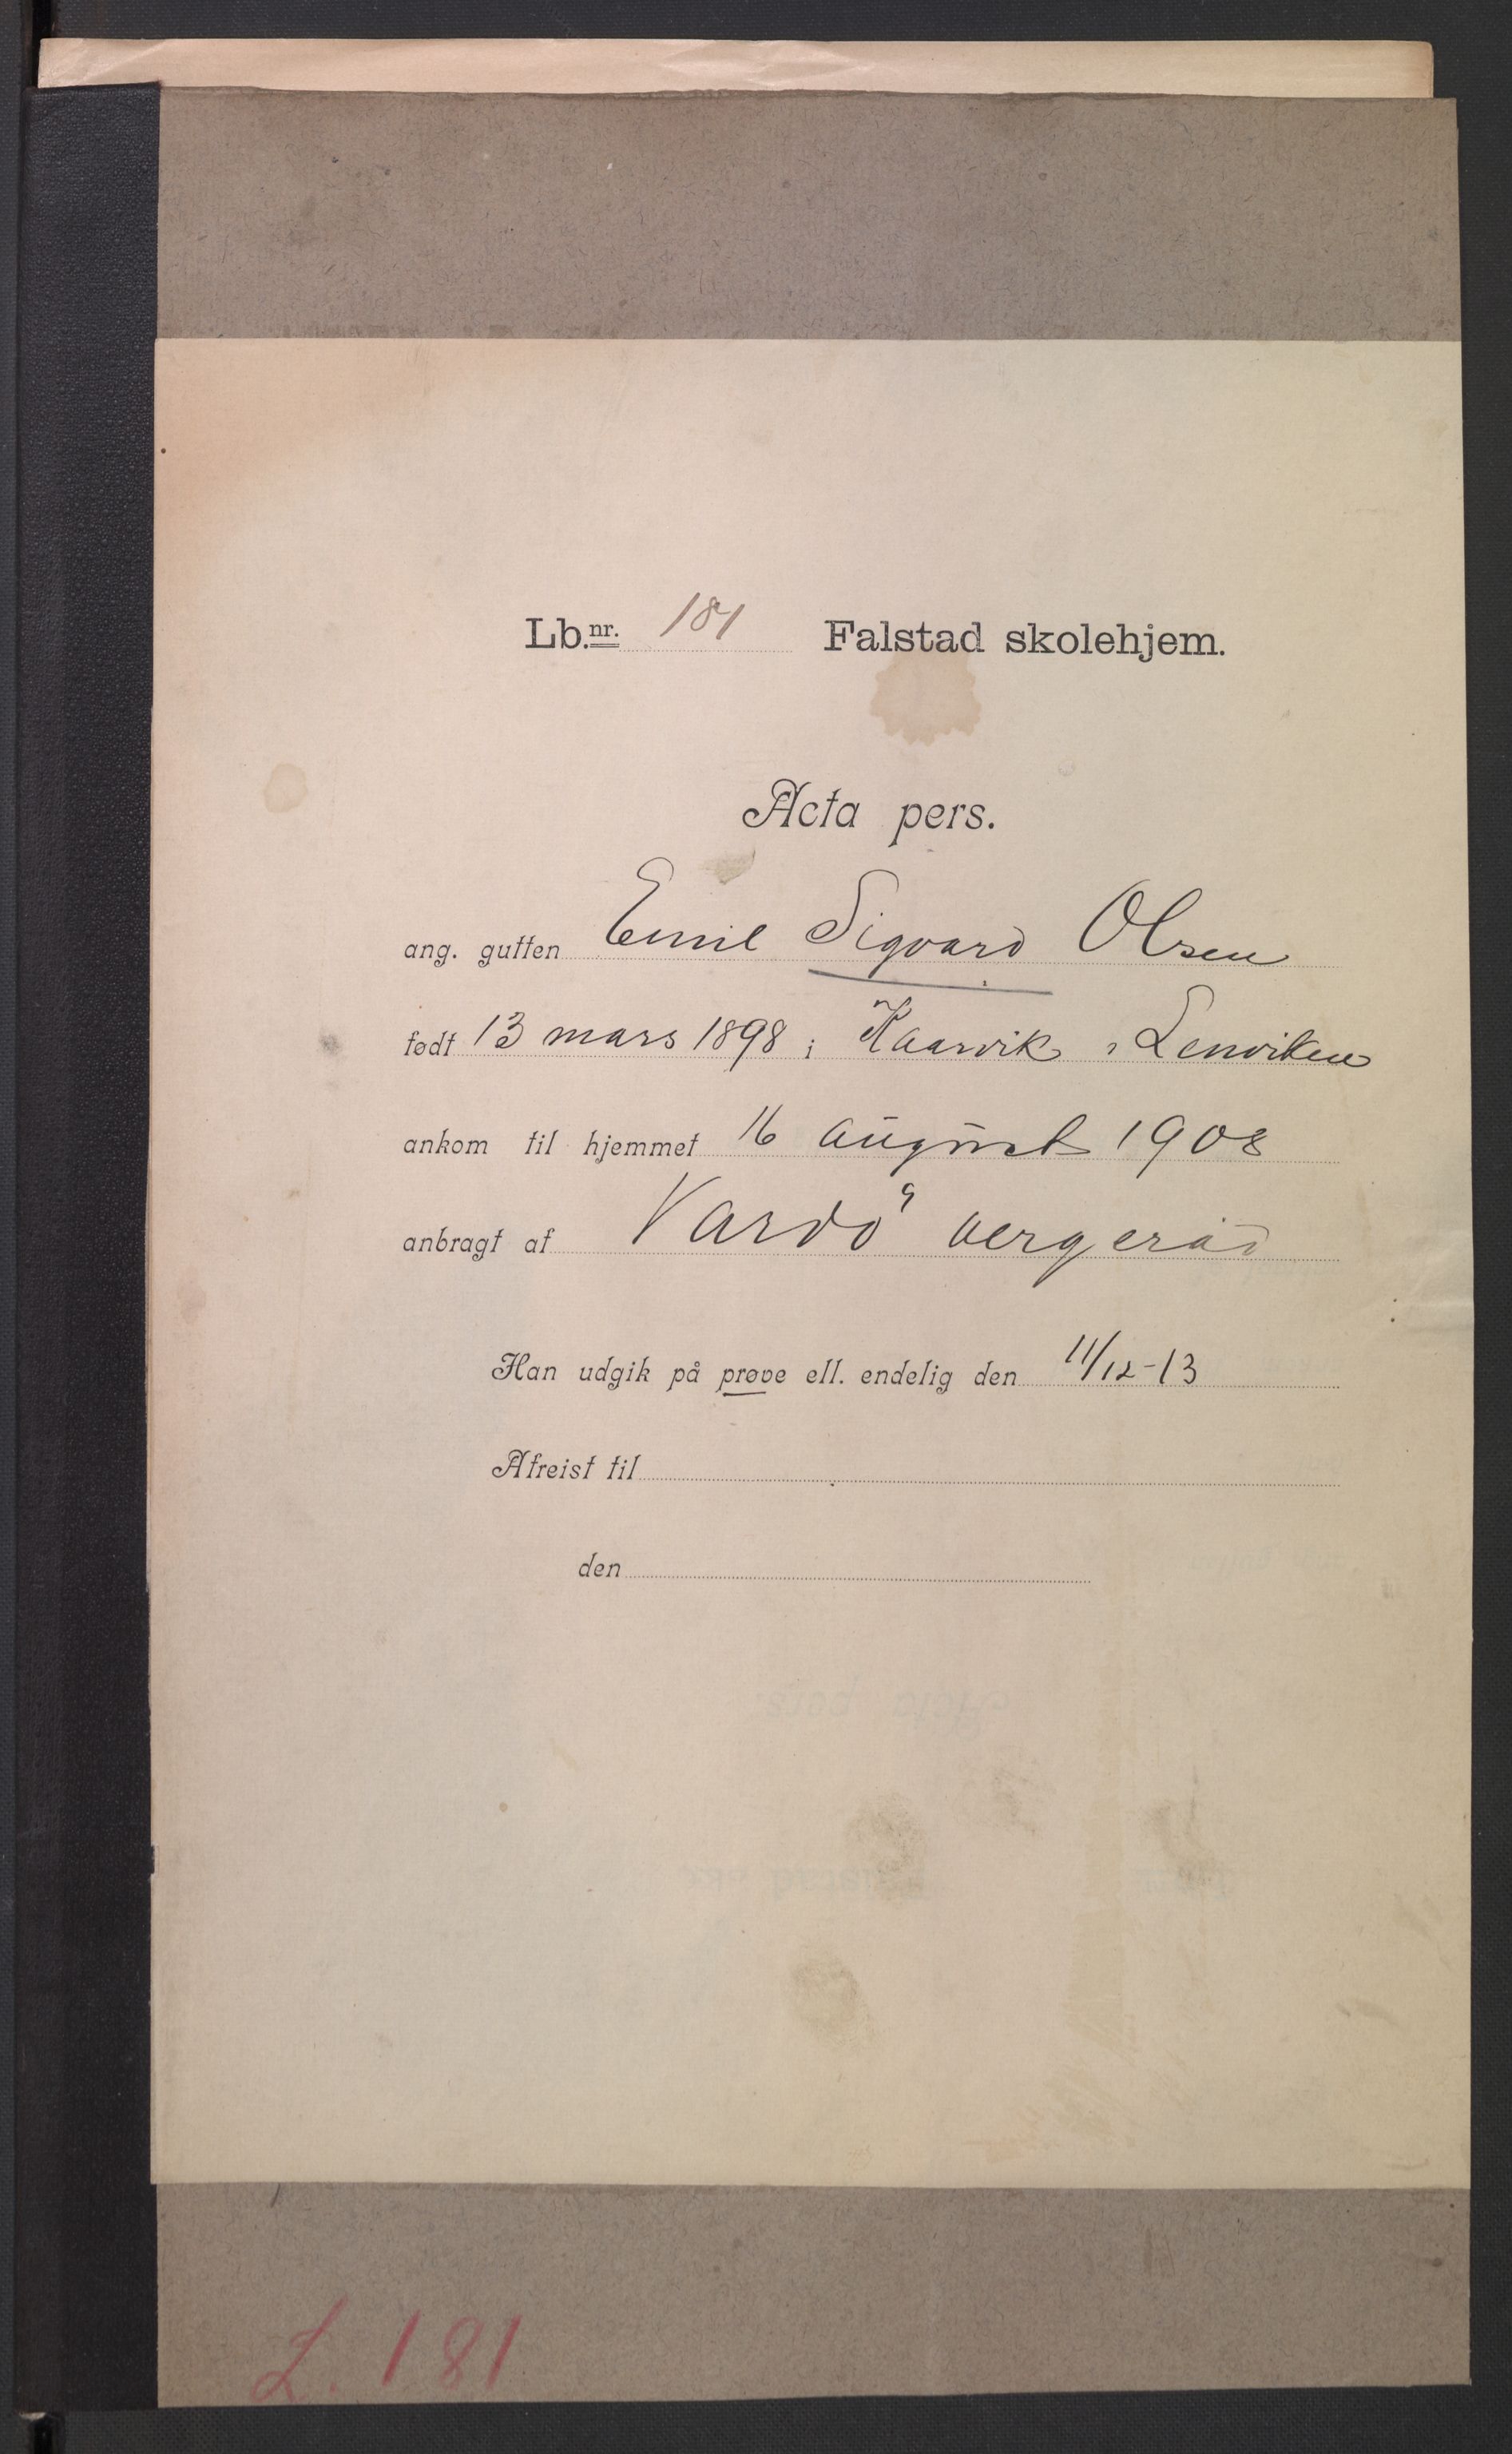 Lb.nr. 181 Falstad skolehjem.
Acta pers.
ang. gutten Emil Sigvard Olsen
født 13 mars 1898 i Kaarvik, Lenviken
ankom til hjemmet 16 august 1908
anbragt af Vardö vergeråd
Han udgik på prøve ell. endelig den 11/12-13
Afreist til
den
L. 181